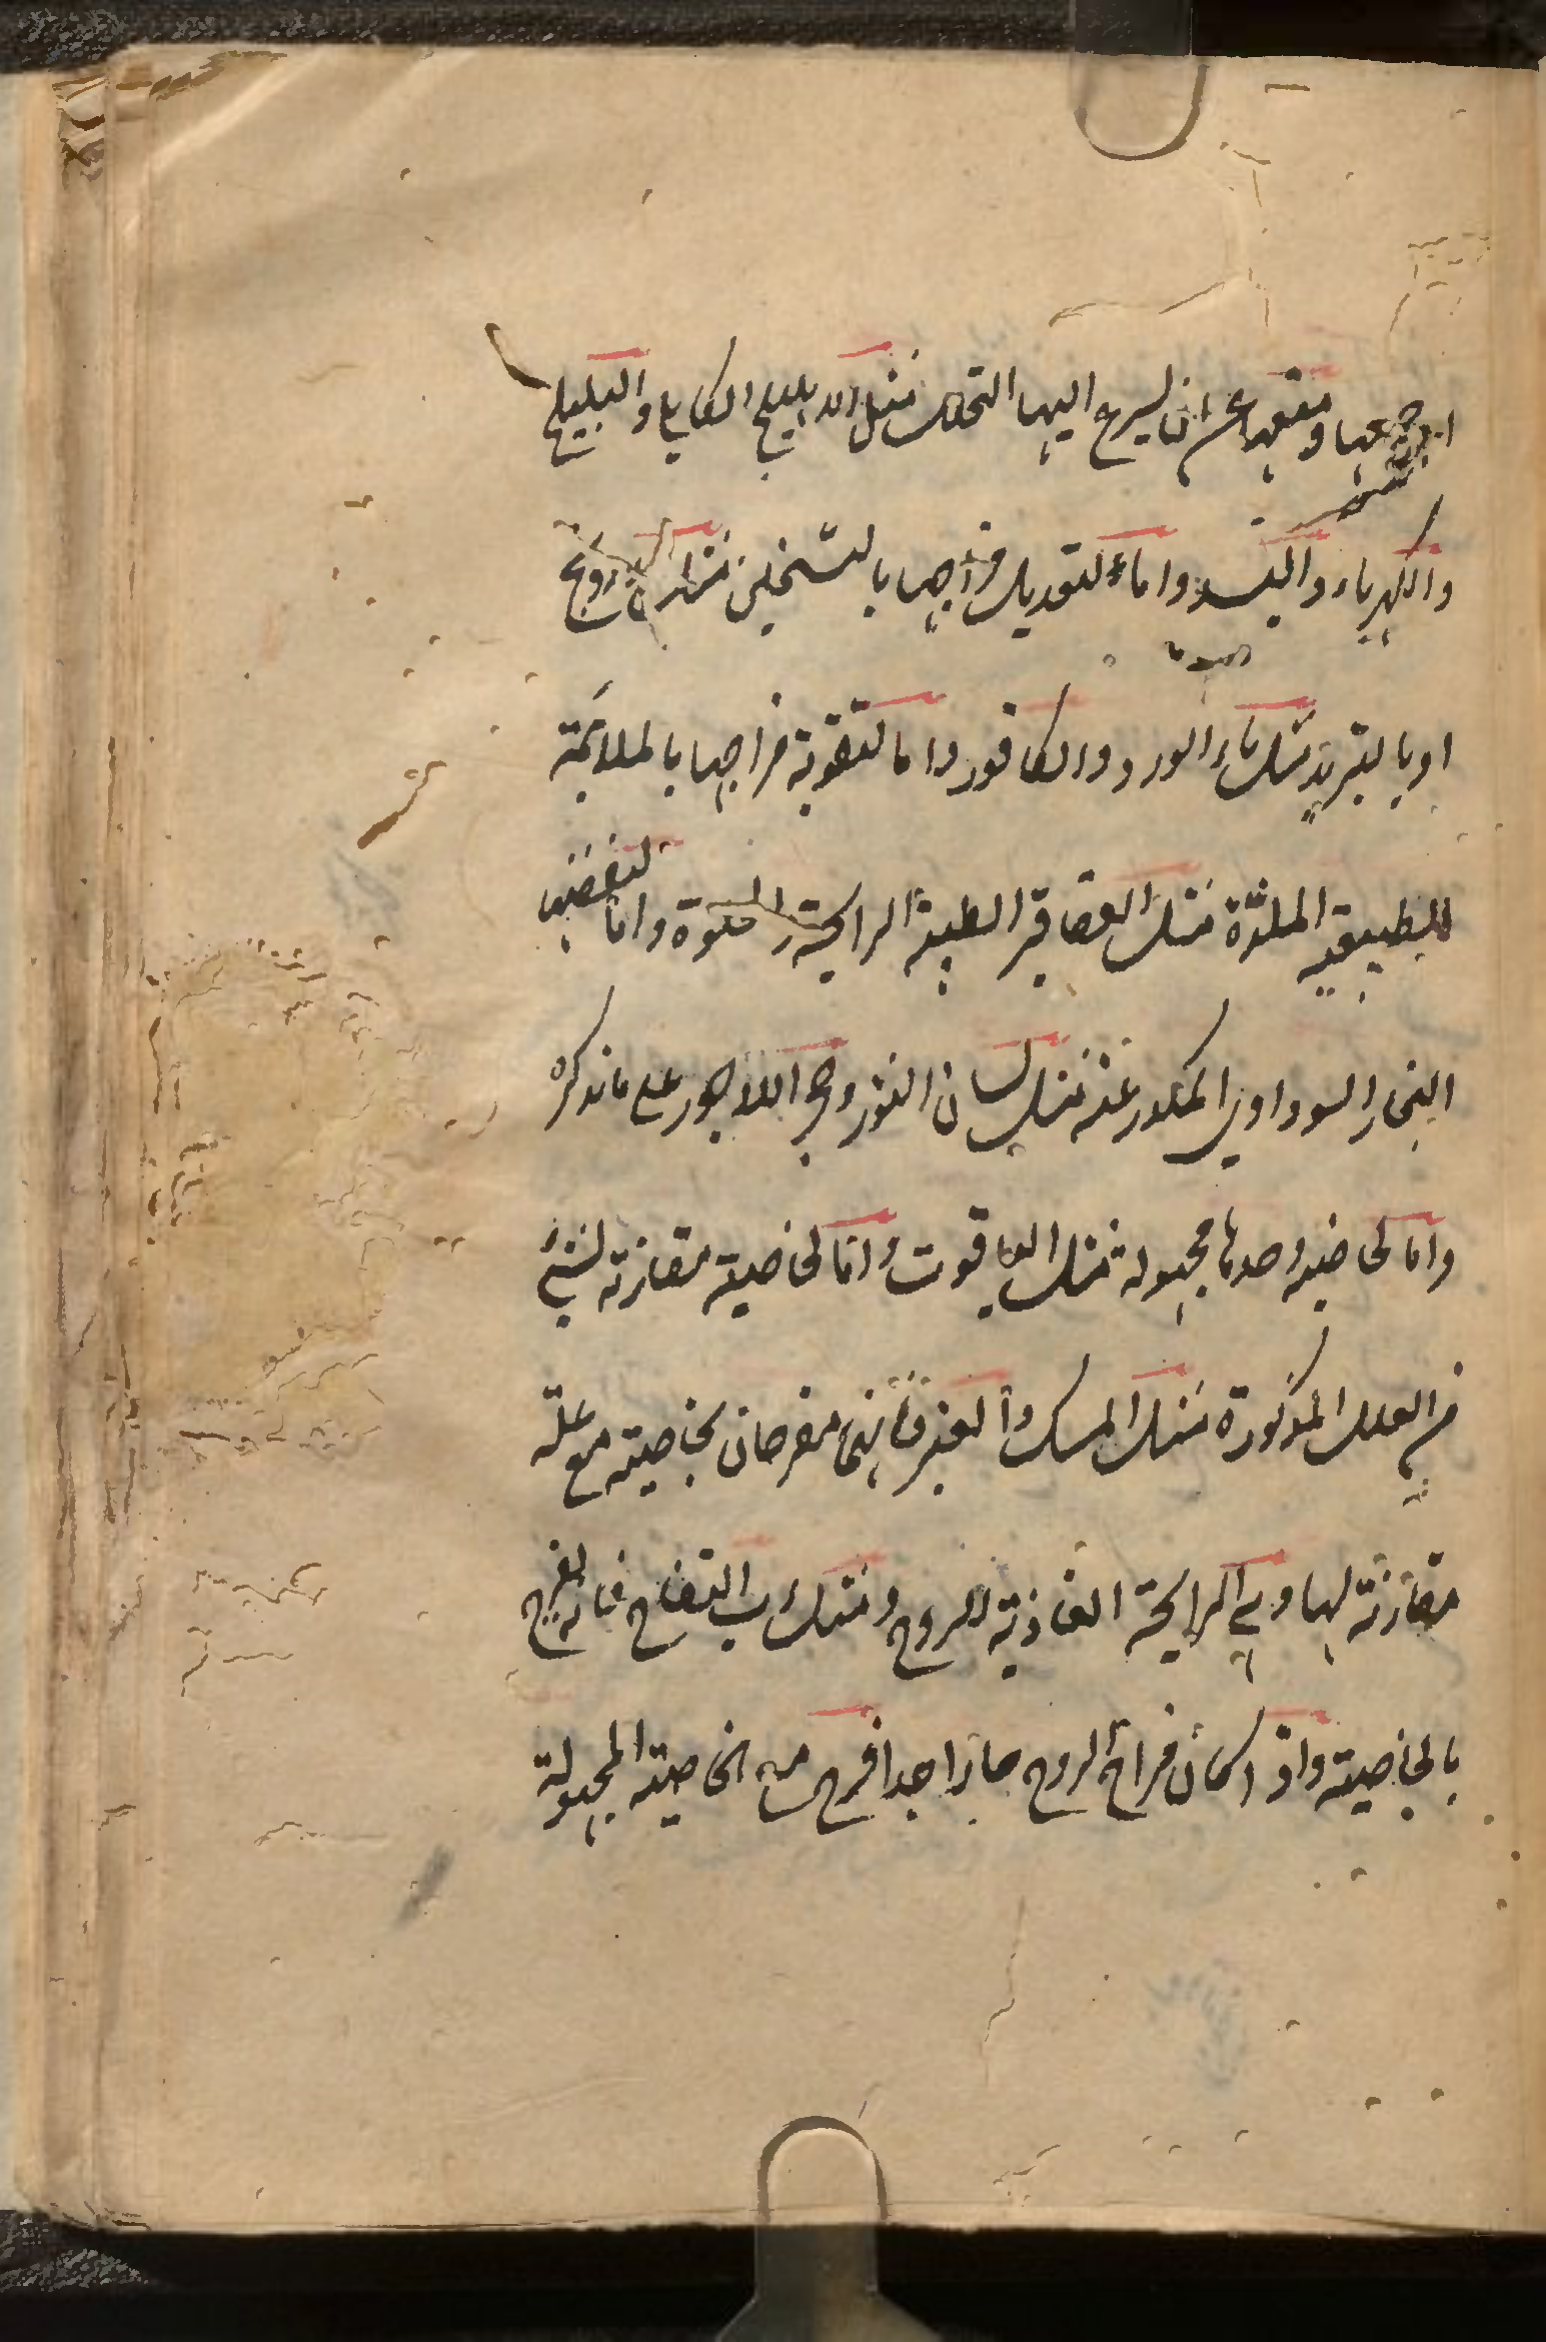 ومنعها عن ان يسرع اليها التحلل مثل الاهليلج الكابلي والبليلج
والكهرباء والبسد واما لتعديل مزاجها بالتسخين مثل الدرونج
او بالتبريد مثل ماء الورد والكافور واما لتقوية مزاجها بالملائمة
للطبيعة الملذة مثل العقاقير الطيبة الرايحة والحلوة واما لنفضها
البخار السوداوي المكدر عنه مثل لسان الثور وحجر اللاجورد على ما نذكره
واما لخاصية وحدها مجهولة مثل الياقوت واما لخاصية مقارنة لشيء
من العلل المذكورة مثل المسك والعنبر فانهما مفرحان بخاصيته مع علة
مقارنة لها وهي الرايحة الغاذية للروح ومثل رب التفاح فانه يفرح
بالخاصية واذا كان مزاج الروح حارا جدا فرح مع الخاصية المجهولة